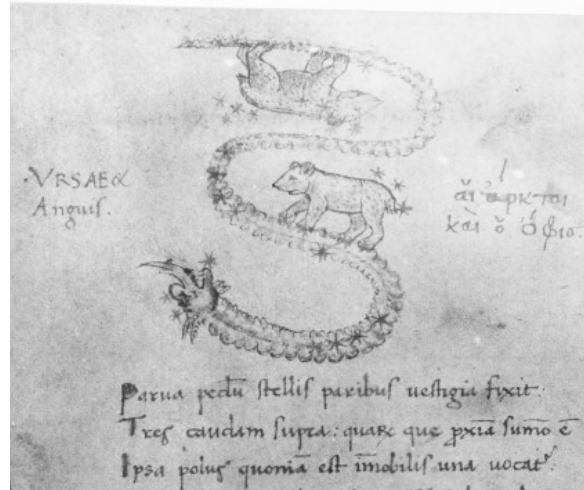 ·VRSAE &
Anguis.
ἄι ἄρκτοι
καὶ ὁ ὄφις.
Parua pedū stellis paribus uestigia fixit:
Tres caudam supra: quarę que ꝓxīa sum̄o ē
Ipsa polus quoniā est im̄obilis una uocat᷑